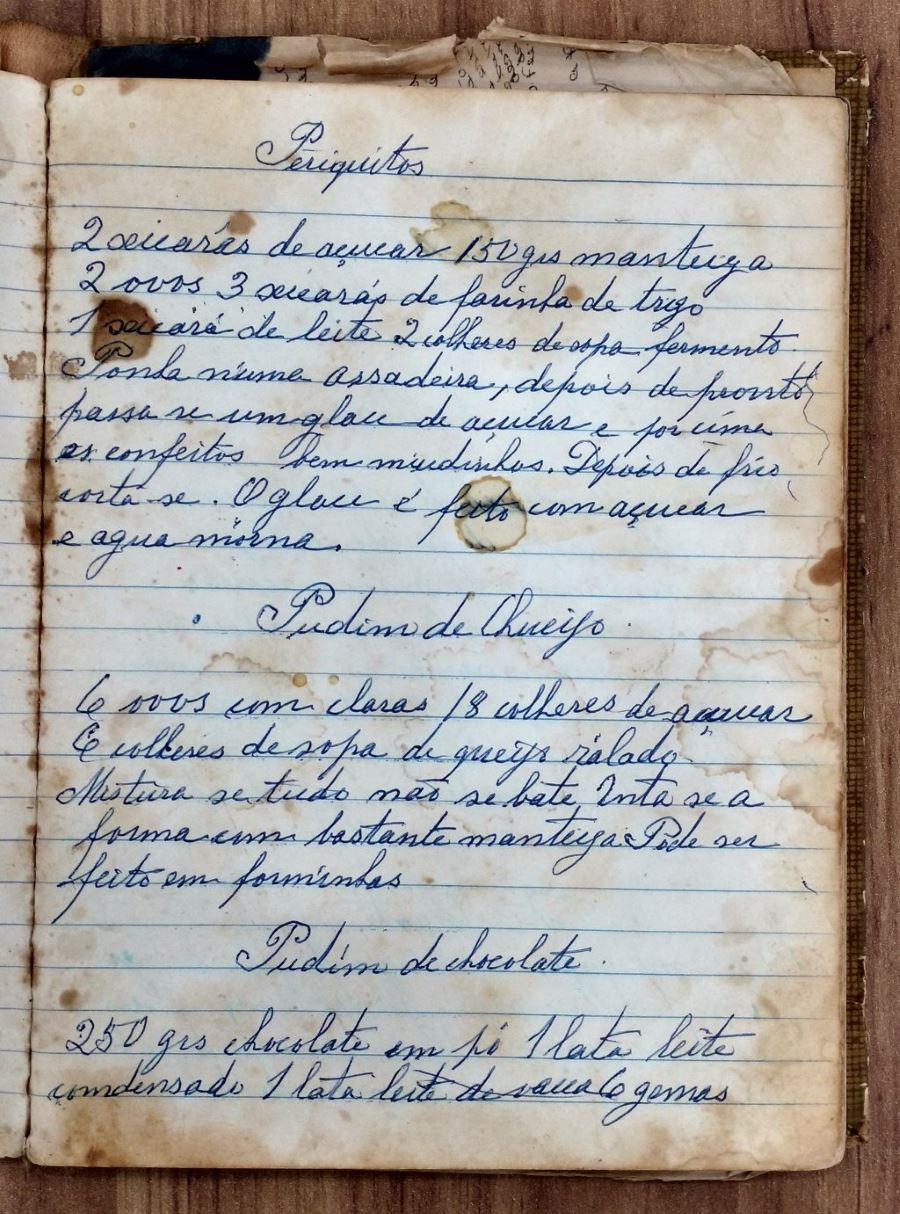 Periquitos
2 xicarás de açucar 150 grs manteiga
2 ovos 3 xicarás de farinha de trigo
1 xicará de leite 2 colheres de sopa fermento.
Ponha numa assadeira, depois de pronto
passa se um glacu de açucar e por cima
os confeitos bem miudinhos. Depois de frio
corta-se. O glacu é feito com açucar
e agua morna.
Pudim de Queijo
6 ovos com claras 18 colheres de açucar
6 colheres de sopa de queijo ralado
Mistura se tudo não se bate, Unta se a
forma com bastante manteiga Pode ser
feito em forminhas
Pudim de chocolate.
250 grs chocolate em pó 1 lata leite
comdensado 1 lata leite de vacca 6 gemas